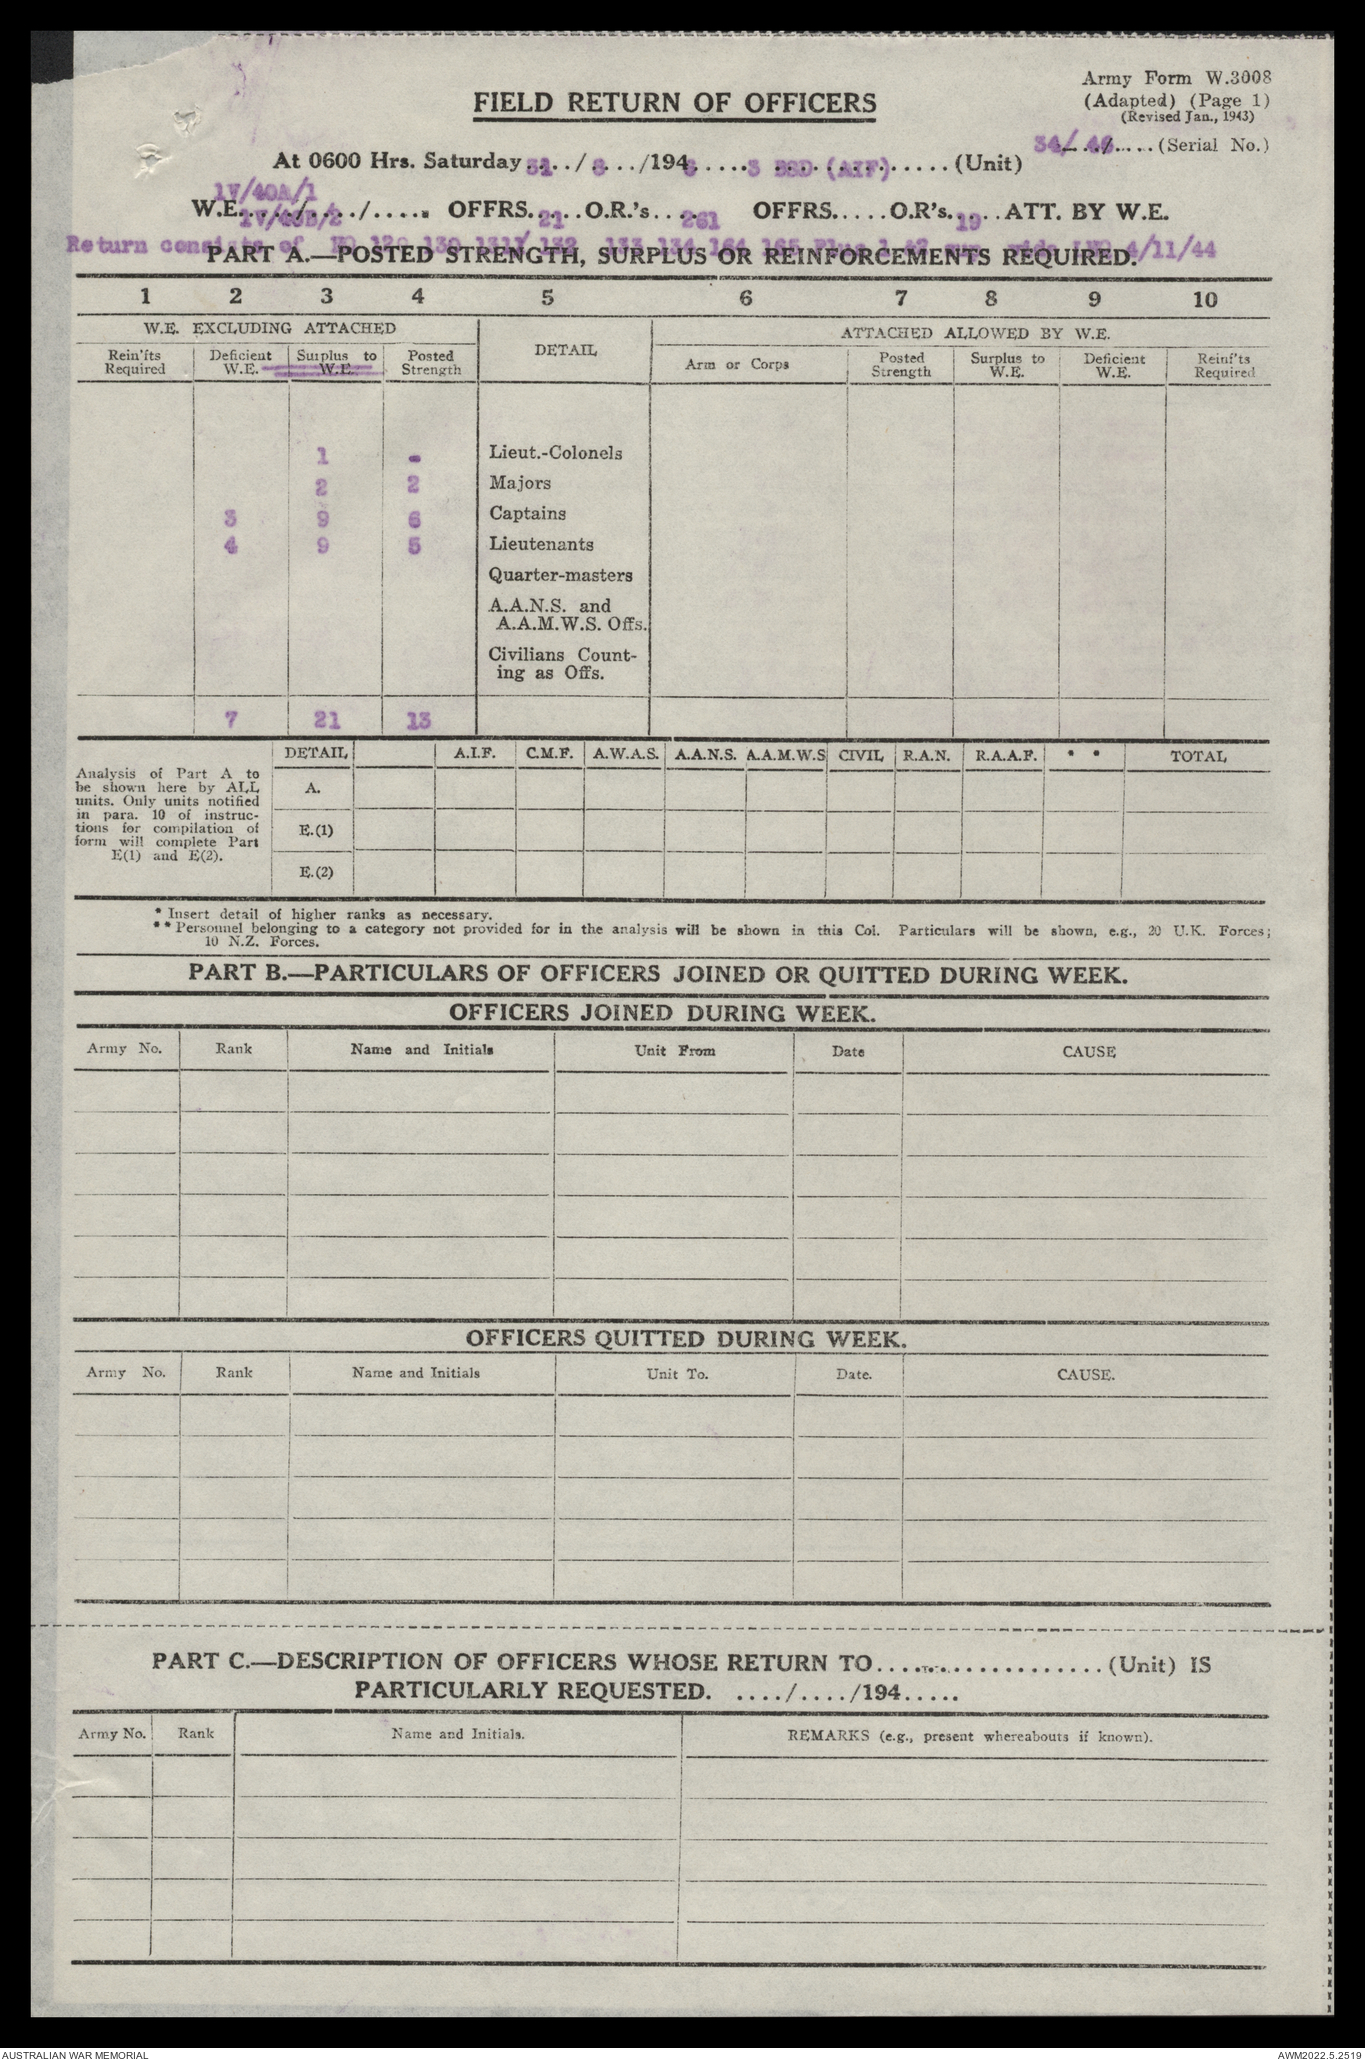 Army Form W.3008
FIELD RETURN OF OFFICERS
(Adapted) (Page 1)
(Revised Jan., 1943)
34/46..../.....(Serial No.)
At 0600 Hrs. Saturday 31../ 8 .../194 6 ..... 3 BSD (AIF) ......(Unit)
1V/40A/1
W.E...../..../..... OFFRS. 21 ..O.R.'s.... 261 OFFRS.....O.R's. 19 ..ATT. BY W.E.
1V/40B/2
Return consists of 129 130 131/ 132 133 134 164 165 Plus 4/11/44
PART A.—POSTED STRENGTH, SURPLUS OR REINFORCEMENTS REQUIRED.
1 2 3 4 5 6 7 8 9 10
W.E. EXCLUDING ATTACHED DETAIL ATTACHED ALLOWED BY W.E.
Rein'fts Required Deficient W.E. Surplus to W.E. Posted Strength Arm or Corps Posted Strength Surplus to W.E. Deficient W.E. Reinf'ts Required
1 - Lieut.-Colonels
2 2 Majors
3 9 6 Captains
4 9 5 Lieutenants
Quarter-masters
A.A.N.S. and
A.A.M.W.S. Offs.
Civilians Count-
ing as Offs.
7 21 13
DETAIL A.I.F. C.M.F. A.W.A.S. A.A.N.S. A.A.M.W.S CIVIL R.A.N. R.A.A.F. * * TOTAL
Analysis of Part A to
be shown here by ALL
units. Only units notified
in para. 10 of instruc-
tions for compilation of
form will complete Part
E(1) and E(2).
A.
E.(1)
E.(2)
* Insert detail of higher ranks as necessary.
** Personnel belonging to a category not provided for in the analysis will be shown in this Col. Particulars will be shown, e.g., 20 U.K. Forces;
10 N.Z. Forces.
PART B.—PARTICULARS OF OFFICERS JOINED OR QUITTED DURING WEEK.
OFFICERS JOINED DURING WEEK.
Army No. Rank Name and Initials Unit From Date CAUSE
OFFICERS QUITTED DURING WEEK.
Army No. Rank Name and Initials Unit To. Date. CAUSE.
PART C.—DESCRIPTION OF OFFICERS WHOSE RETURN TO......................(Unit) IS
PARTICULARLY REQUESTED. ..../..../194.....
Army No. Rank Name and Initials. REMARKS (e.g., present whereabouts if known).
AUSTRALIAN WAR MEMORIAL AWM2022.5.2519